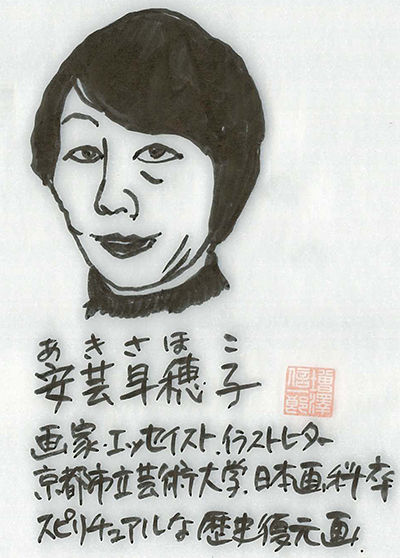 あきさほこ
安芸早穂子
増澤
信一郎
画家.エッセイスト.イラストレター
京都市立芸術大学.日本画科卒
スピリチュアルな歴史復元画.